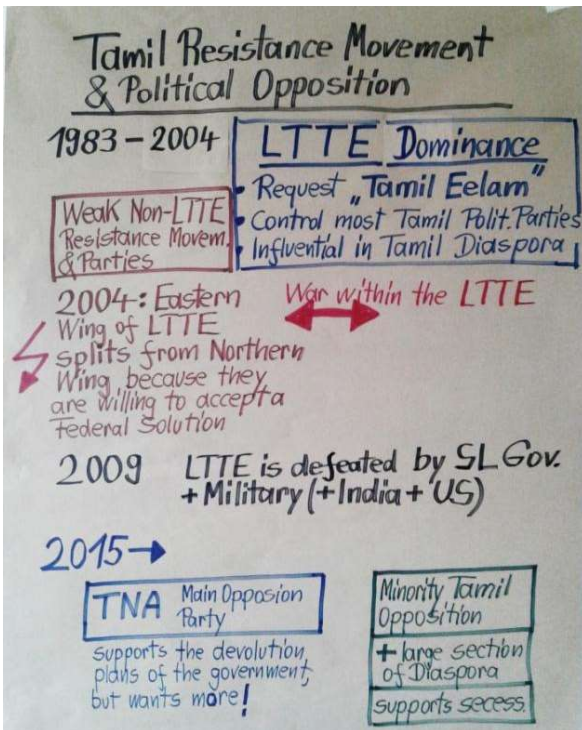 Tamil Resistance Movement
& Political Opposition
1983 – 2004
LTTE Dominance
• Request „Tamil Eelam"
• Control most Tamil Polit. Parties
• Influential in Tamil Diaspora
Weak Non-LTTE
Resistance Movem.
& Parties
2004: Eastern
Wing of LTTE
splits from Northern
Wing, because they
are willing to accept a
Federal Solution
War within the LTTE
2009 LTTE is defeated by SL Gov.
+ Military (+ India + US)
2015→
TNA Main Opposion
Party
supports the devolution
plans of the government,
but wants more!
Minority Tamil
Opposition
+ large section
of Diaspora
supports secess.